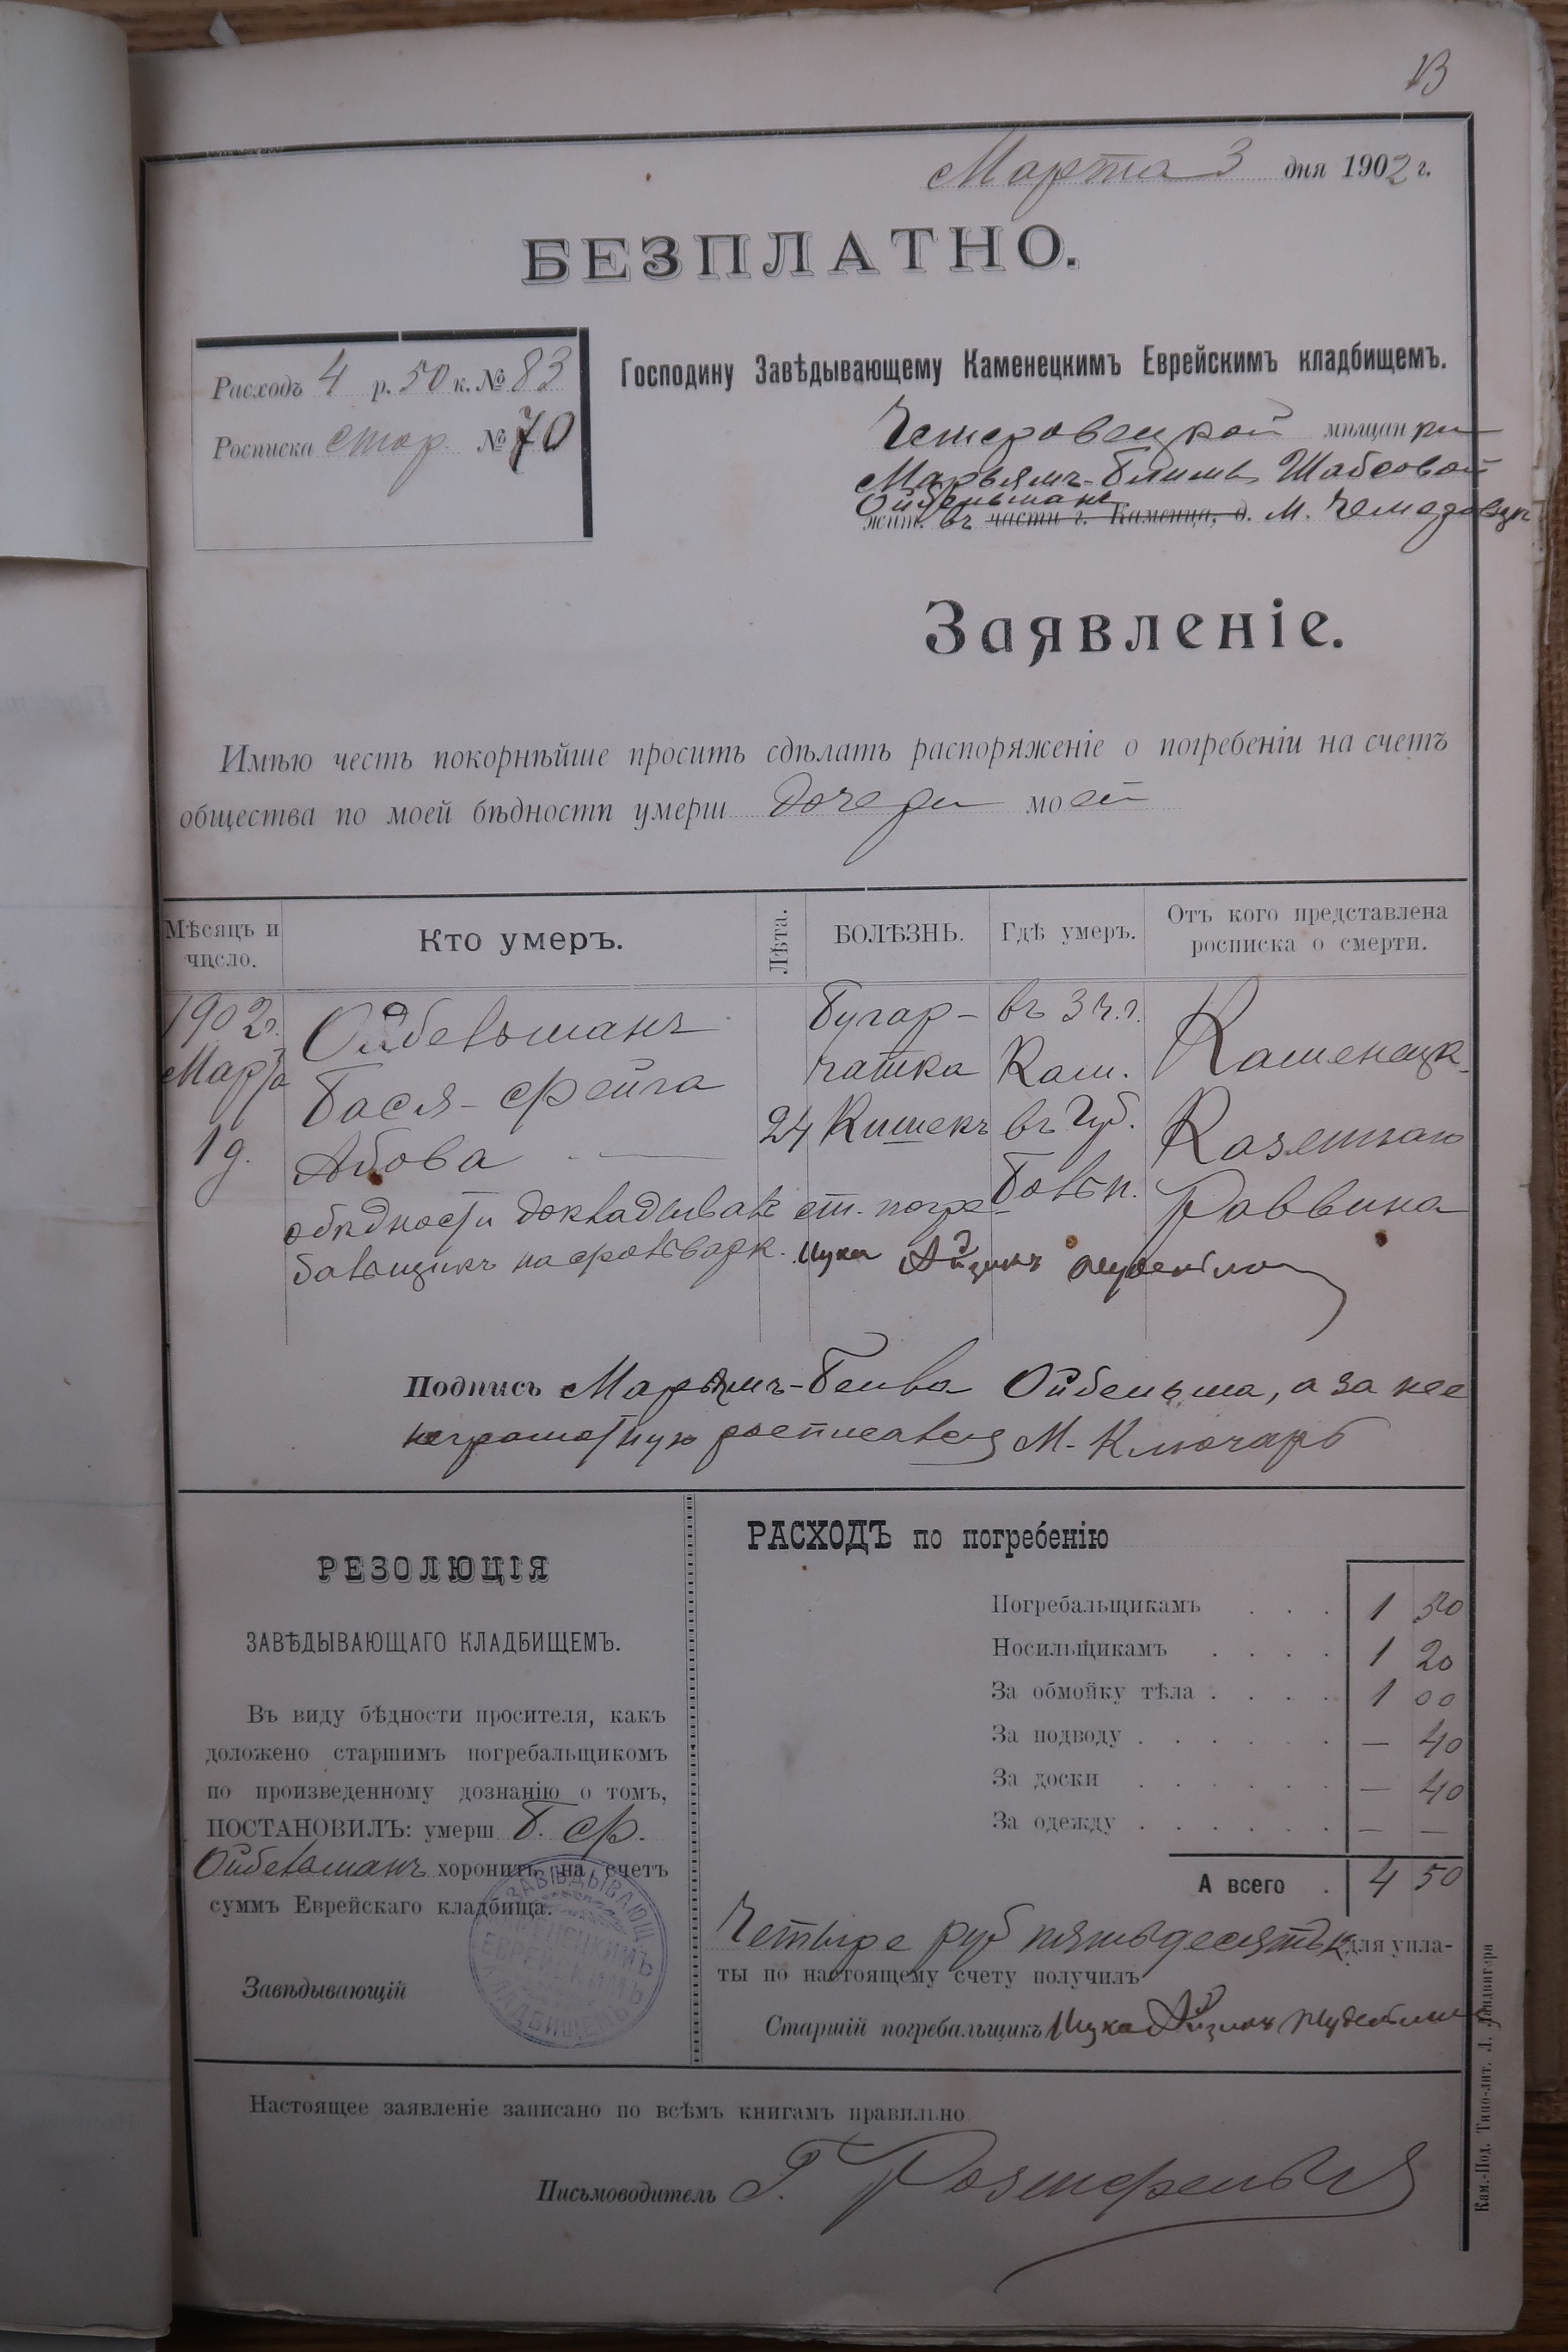 13
Марта 3 дня 1902 г.
БЕЗПЛАТНО.
Расходъ 4 р. 50 к. № 83
Росписка стор. № 70
Господину Завѣдывающему Каменецкимъ Еврейскимъ кладбищемъ.
Чемеровецкой мѣщанки
Марьямъ- Шабсовой
Ойбельманъ
жит. въ части г. Каменца, д. М. Чемеровцы
Заявленіе.
Имѣю честь покорнѣйше просить сдѣлать распоряженіе о погребеніи на счетъ
общества по моей бѣдности умерш дочери моей
Мѣсяцъ и число.
Кто умеръ.
Лѣта.
БОЛѢЗНЬ.
Гдѣ умеръ.
Отъ кого представлена росписка о смерти.
1902 г.
Марта
1 д.
Ойбельманъ
Бася-Фейга
Абова
24
Бугар-
чатка
Кишекъ
въ 3 ч. г.
Кам.
въ Губ.
Больн.
Каменецк.
Казеннаго
Раввина
о бѣдности докладывалъ ст. погре-
бальщикъ на фольварк. Ицко Айзикъ
Подпись Марьямъ- Ойбельма, а за нее
неграмотную росписался М. Ключарь
РЕЗОЛЮЦІЯ
ЗАВѢДЫВАЮЩАГО КЛАДБИЩЕМЪ.
Въ виду бѣдности просителя, какъ
доложено старшимъ погребальщикомъ
по произведенному дознанію о томъ,
ПОСТАНОВИЛЪ: умерш Б. Ф.
Ойбельманъ хоронить на счетъ
суммъ Еврейскаго кладбища.
Завѣдывающій
ЗАВѢДЫВАЮЩ КАМЕНЕЦКИМЪ ЕВРЕЙСКИМЪ КЛАДБИЩЕМЪ
РАСХОДЪ по погребенію
Погребальщикамъ . . . 1 50
Носильщикамъ . . . . 1 20
За обмойку тѣла . . . . 1 00
За подводу . . . . . . — 40
За доски . . . . . . — 40
За одежду . . . . . . — —
А всего . 4 50
Четыре руб пятьдесятъ к для упла-
ты по настоящему счету получилъ
Старшій погребальщикъ Ицко Айзикъ
Настоящее заявленіе записано по всѣмъ книгамъ правильно
Письмоводитель Г.
Кам.-Под. Типо-лит. Л. Ландвигера